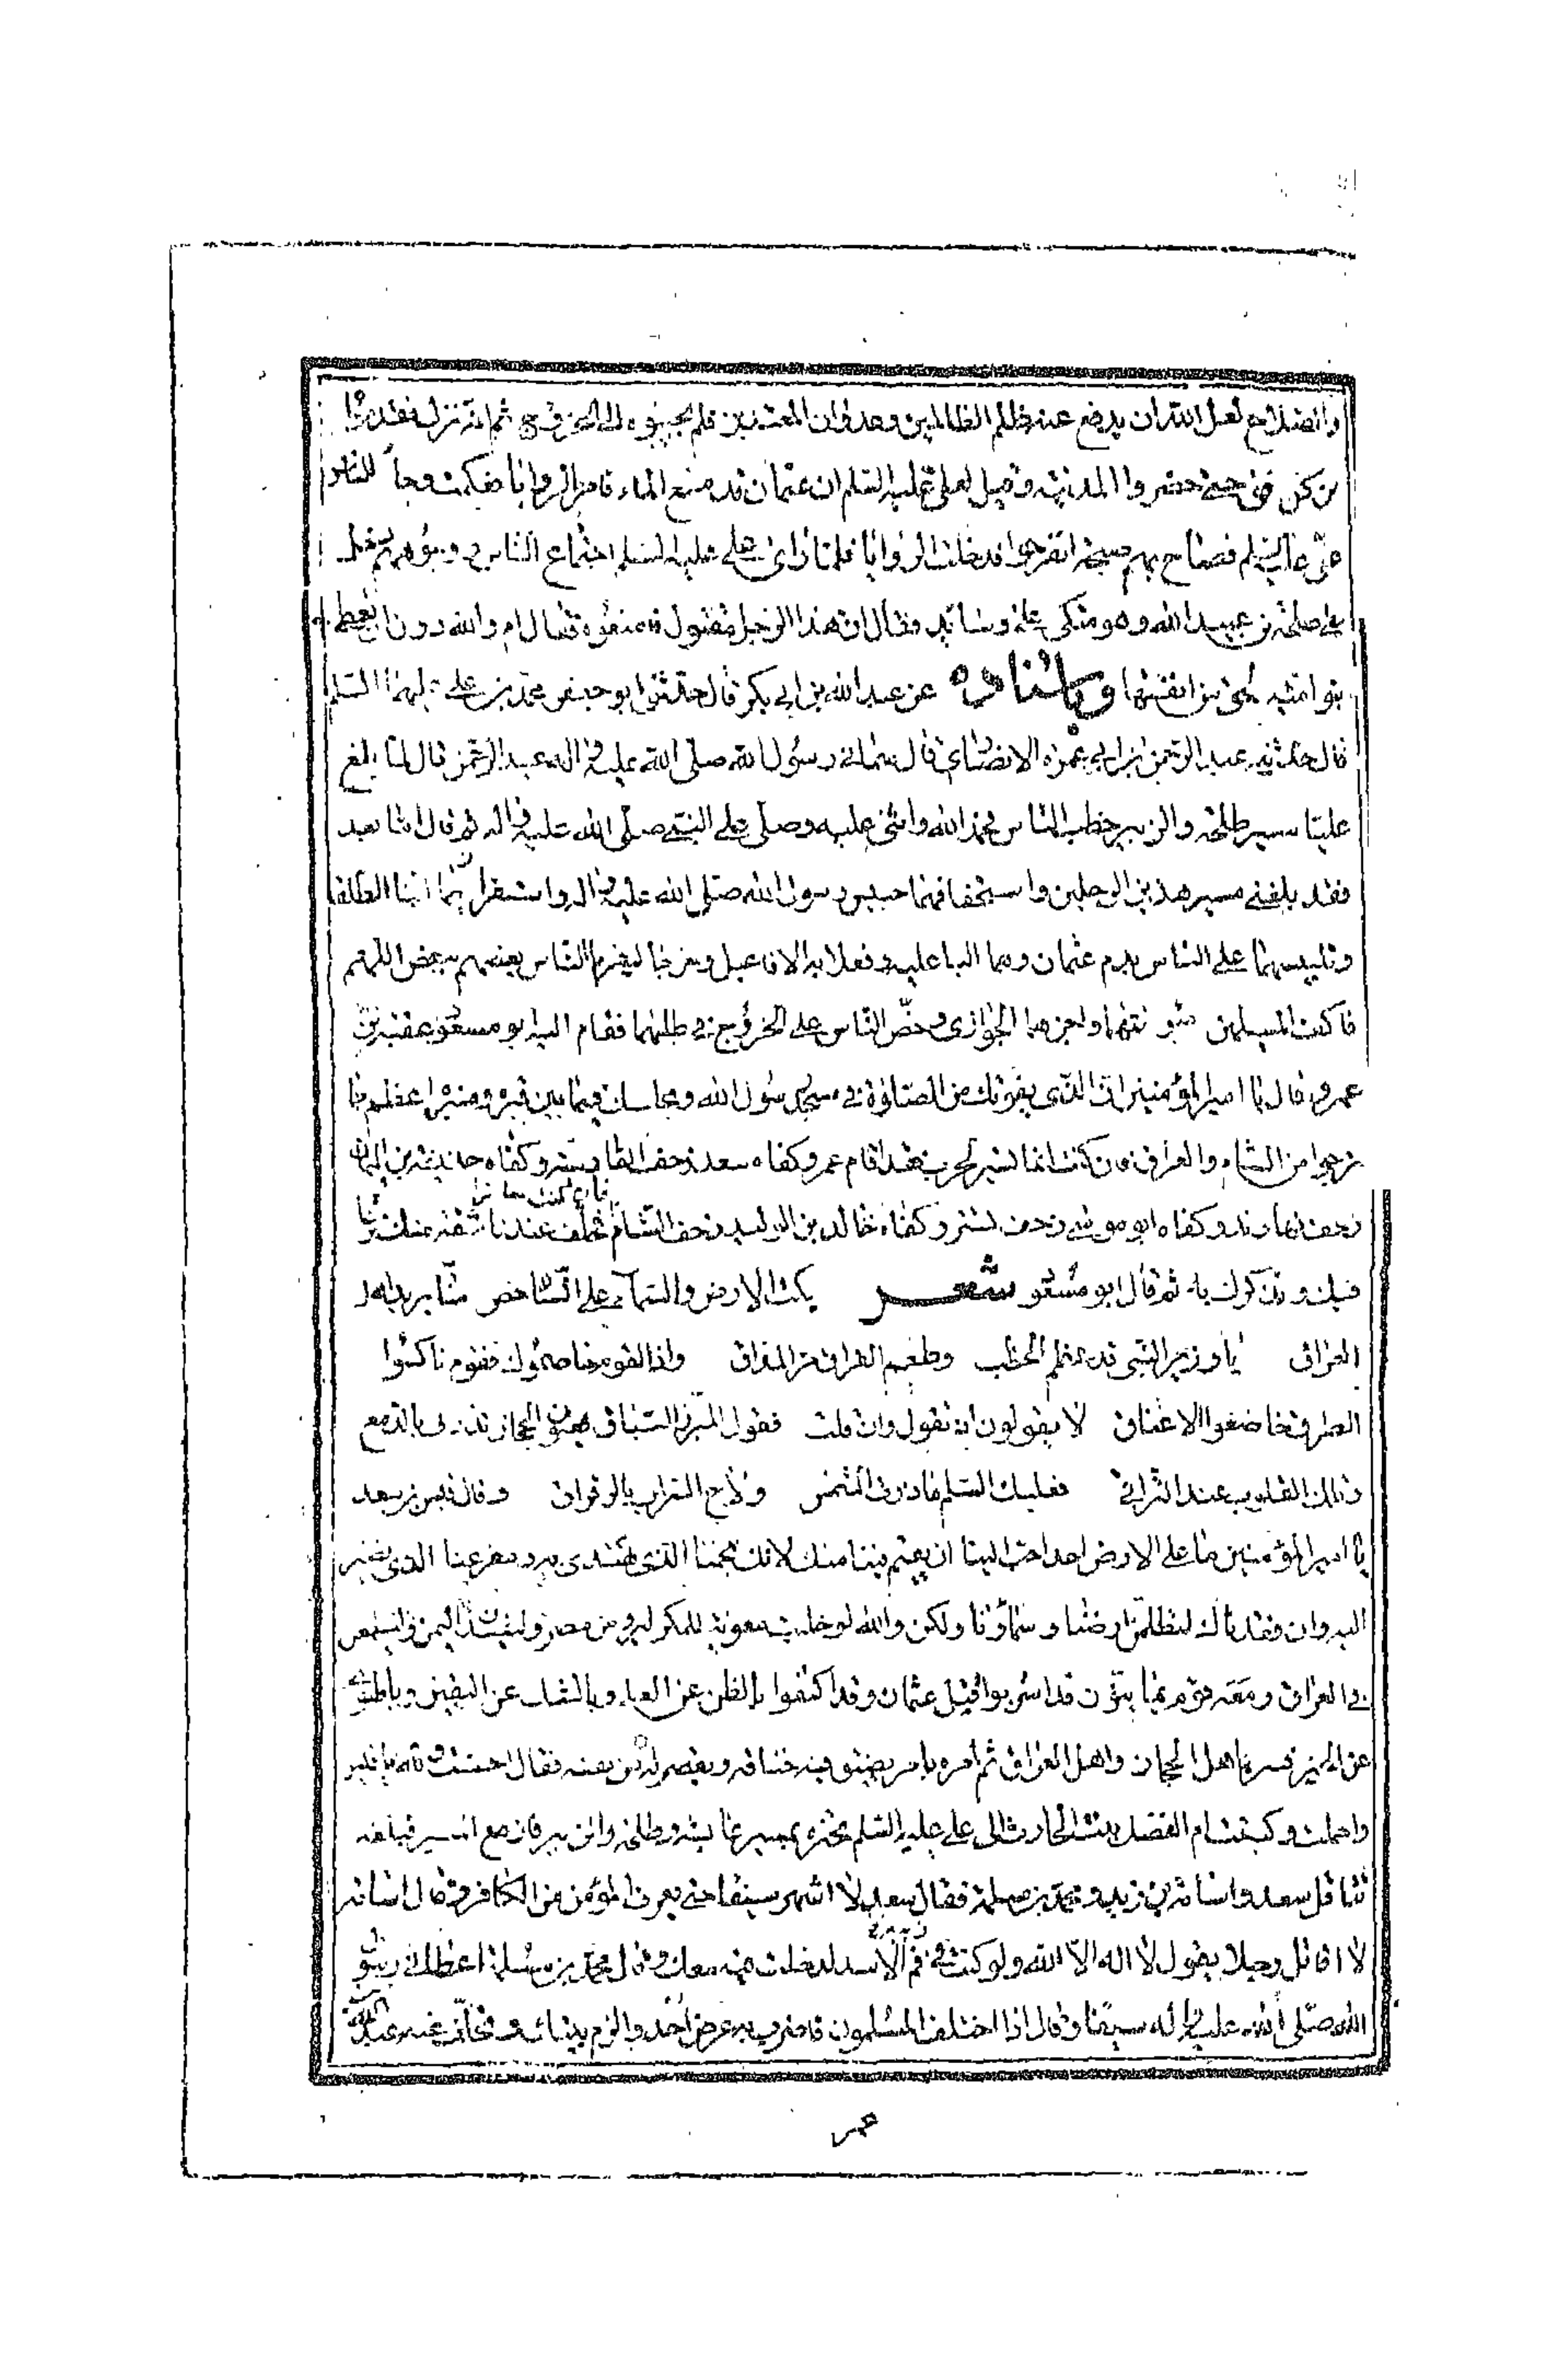 والصلاح لعل الله ان يدفع عنه ظلم الظالمين وعدوان المعتدين فلم يجيبوه الى الخروج ثم انه نزل فقدم
من حتى حضروا المدينة وقيل لعلى عليه السلم ان عثمان قد منع الماء فامر بالروايا فعكمت وجاء للناس
على عليه السلم فصاح بهم صيحة انفرجوا فدخلت الروايا فلما راى على عليه السلم اجتماع الناس ووجوههم دخل
على طلحة بن عبيد الله وهو متكى على وسائد فقال ان هذا الرجل مقتول فامنعوه فقال ام والله دون ان تعطى
بنو امية الحق من انفسها وباسناده عن عبد الله بن ابى بكر قال حدثنى ابو جعفر محمد بن على عليهما السلم
قال حدثنى عبد الرحمن بن ابى عمرة الانصارى قال سمانى رسول الله صلى الله عليه واله عبد الرحمن قال لما بلغ
عليا مسير طلحة والزبير خطب الناس فحمد الله واثنى عليه وصلى على النبى صلى الله عليه واله ثم قال اما بعد
فقد بلغنى مسير هذين الرجلين واستخفافهما حبيس رسول الله صلى الله عليه واله واستفزازهما ابنا الطلقا
وتلبيسهما على الناس بدم عثمان وهما البا عليه وفعلا به الافاعيل وخرجا ليضربا الناس بعضهم ببعض اللهم
فاكف المسلمين مئونتهما واجزهما الجوازى وحض الناس على الخروج فى طلبهما فقام اليه ابو مسعود عقبة بن
عمرو فقال يا امير المؤمنين ان الذى يفوتك من الصلوة فى مسجد رسول الله ومجلسك فيما بين قبره ومنبره اعظم مما
ترجوا من الشام والعراق فان كنت انما تسير لحرب فقد اقام عمر وكفاه سعد زحف القادسية وكفاه حذيفة بن اليمان
زحف نهاوند وكفاه ابو موسى زحف تستر وكفاه خالد بن الوليد زحف الشام فان كنت سائرا فخلف عندنا شقة منك
فيك ونذكرك به ثم قال ابو مسعود شعر بكت الارض والسماء على الشاخص منا يريد اهل
العراق يا وزير النبى قد عظم الخطب وطعم الفراق مر المذاق واذا القوم خاصموك فقوم ناكسوا
الطرف خاضعوا الاعناق لا يقولون اذ تقول وان قلت فقول المبرز السباق فعيون الحجاز تذرى بالدمع
وتلك القلوب عند التراقى فعليك السلم ما ذرت الشمس ولاح السراب بالرقراق وقال قيس بن سعد
يا امير المؤمنين ما على الارض احد احب الينا ان يقيم فينا منك لانك نجمنا الذى نهتدى به ومفزعنا الذى نصير
اليه وان فقدناك لتظلمن ارضنا وسماؤنا ولكن والله لو خليت معوية للمكر ليرومن مصر وليفسدن اليمن وليطمعن
فى العراق ومعه قوم يمانيون قد اشربوا قتل عثمان وقد اكتفوا بالظن عن العلم وبالشك عن اليقين وبالهوى
عن الخير فسر باهل الحجاز واهل العراق ثم ارمه بامر يضيق فيه خناقه ويقصر له من نفسه فقال احسنت والله يا قيس
واجملت وكتبت ام الفضل بنت الحارث الى على عليه السلم تخبره بمسير عايشة وطلحة والزبير فازمع المسير فبلغه
تثاقل سعد واسامة بن زيد ومحمد بن مسلمة فقال سعد لا اشهر سيفا حتى يعرف المؤمن من الكافر وقال اسامة
لا اقاتل رجلا يقول لا اله الا الله ولو كنت فى فم الاسد لدخلت فيه معك وقال محمد بن مسلمة اعطانى رسول
الله صلى الله عليه واله سيفا وقال اذا اختلف المسلمون فاضرب به عرض احد والزم بيتك وتخلف عنه عبد الله
عمر